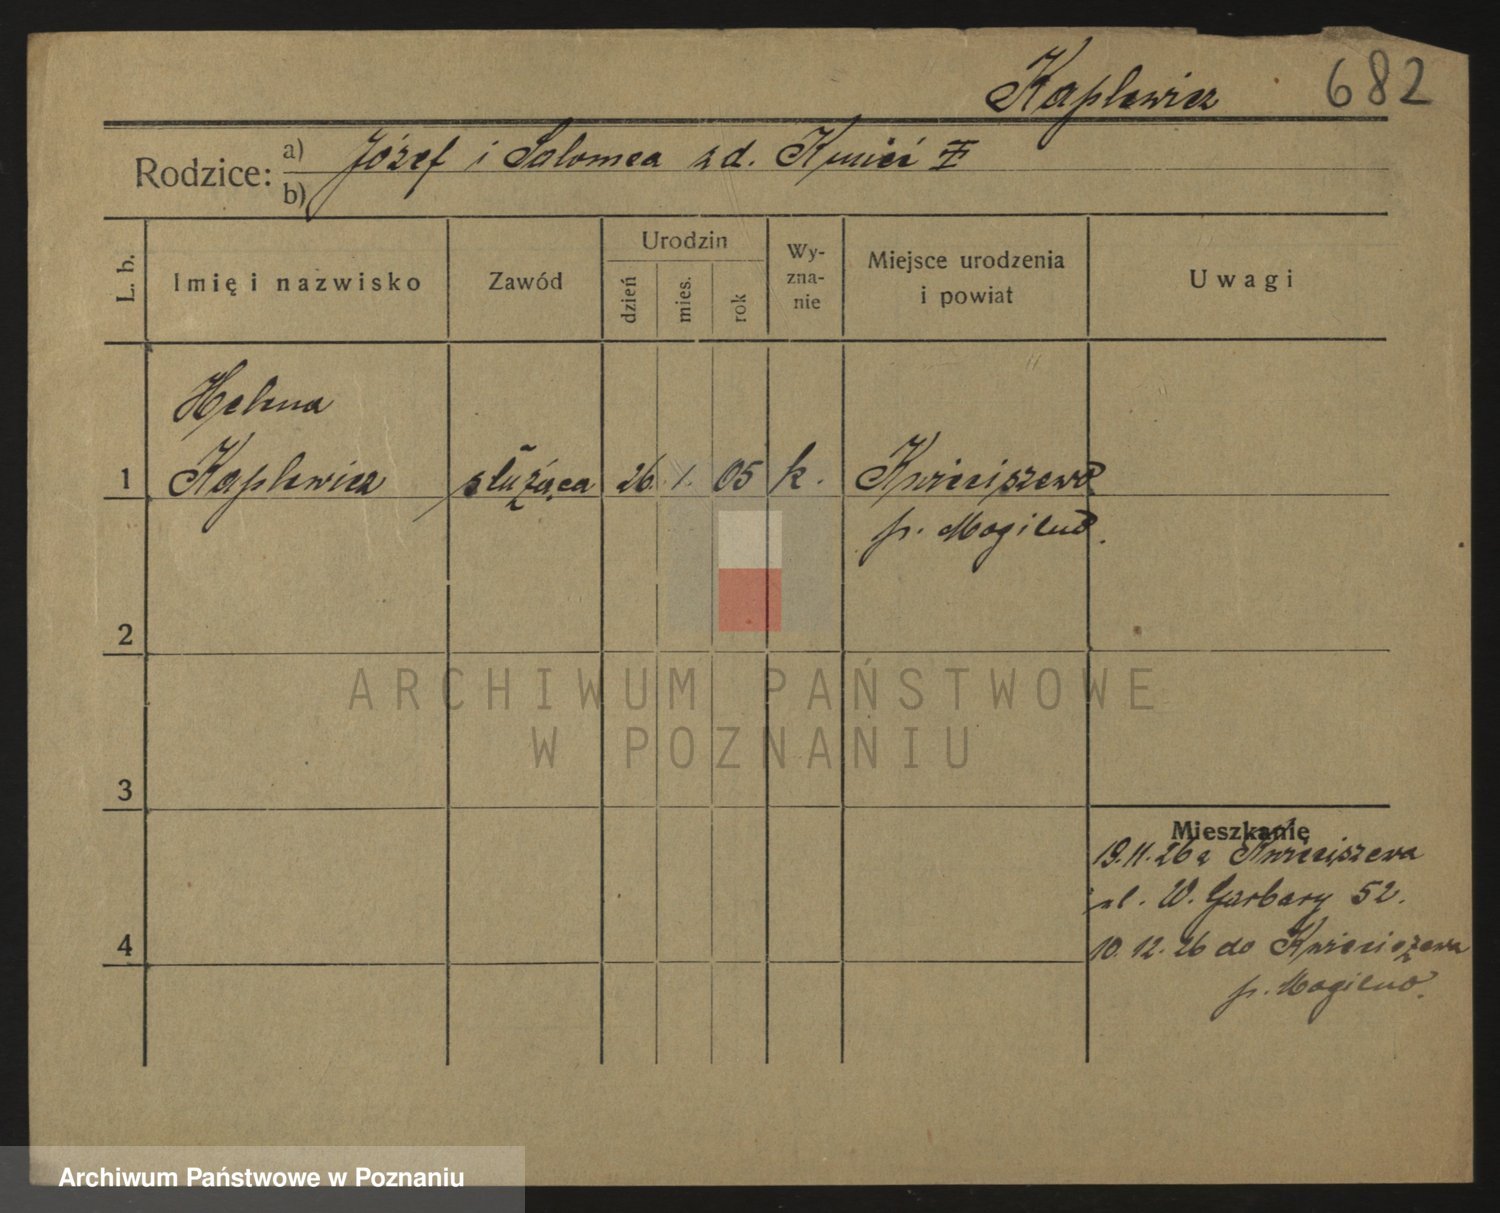 Kaplewicz 682
Rodzice: a) Józef i Salomea zd. Kmieć
b)
L. b.
Imię i nazwisko
Zawód
Urodzin
dzień
mies.
rok
Wy-
zna-
nie
Miejsce urodzenia
i powiat
Uwagi
Helena
1 Kaplewicz służąca 26. 1. 05 k. Kwieciszewo
p. Mogilno.
2
3
4
Mieszkanie
19.11.26 z Kwieciszewa
ul. W. Garbary 52.
10.12.26 do Kwieciszewa
p. Mogilno.
ARCHIWUM PAŃSTWOWE
W POZNANIU
Archiwum Państwowe w Poznaniu